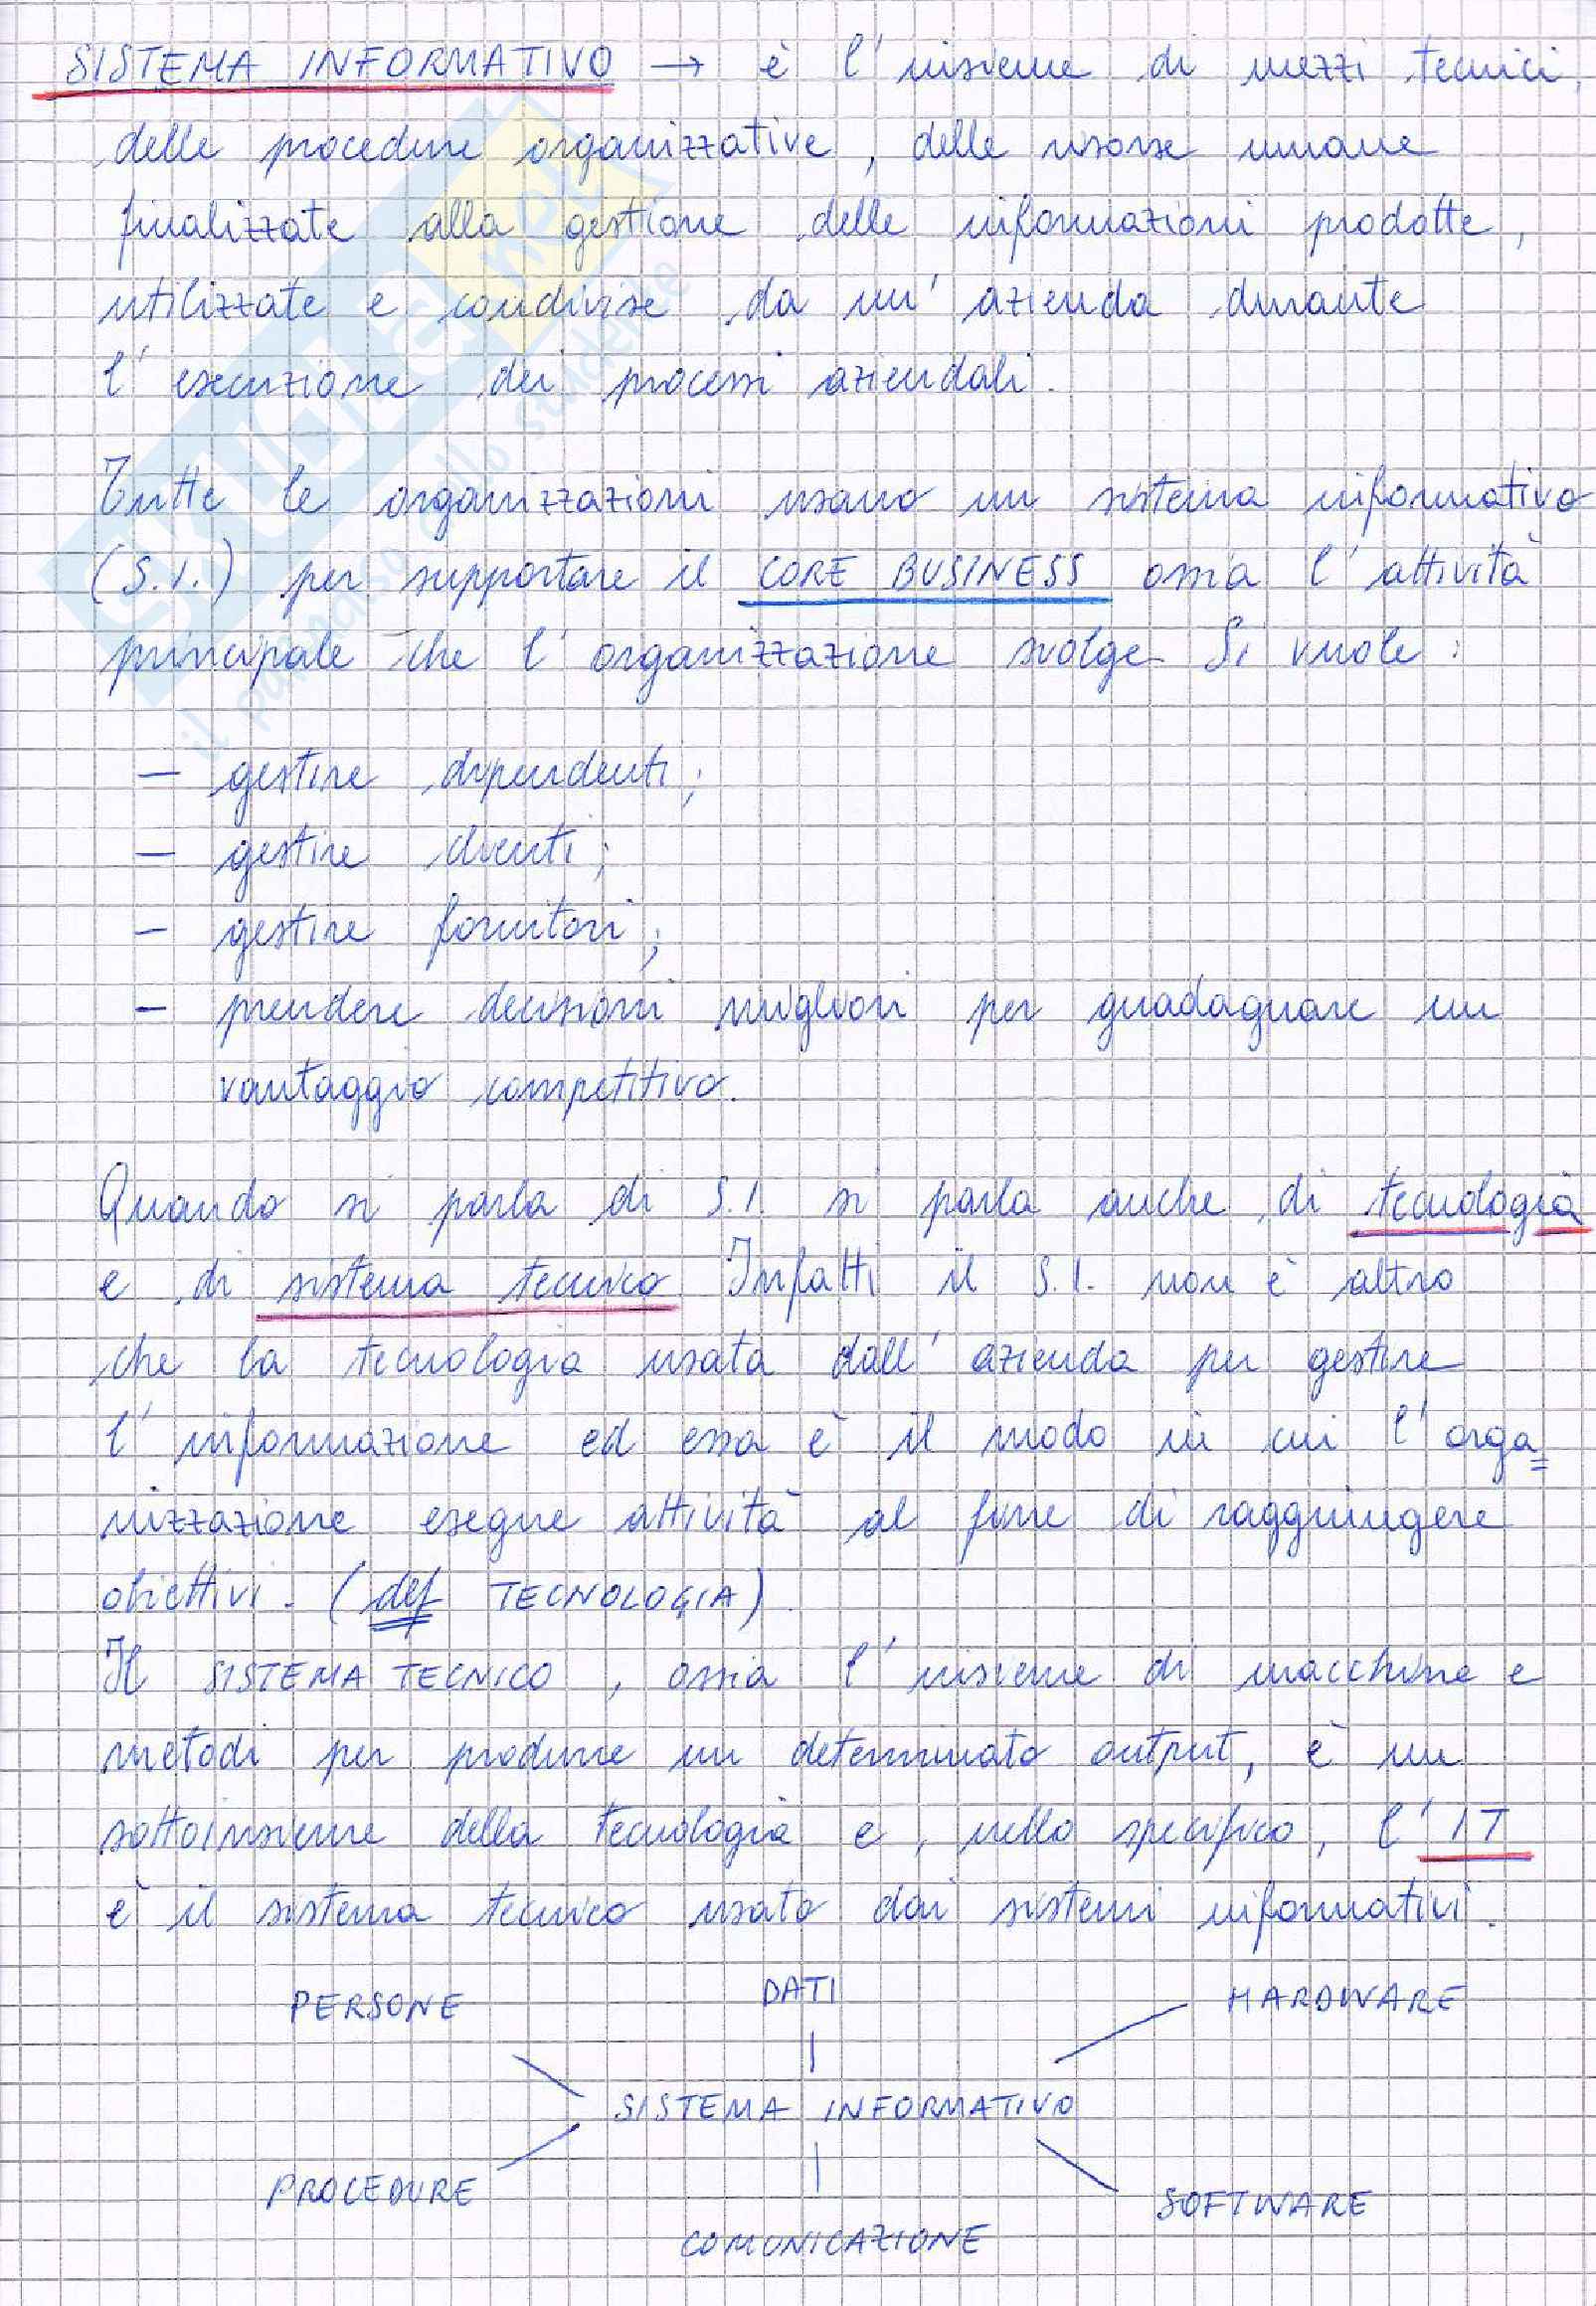 SISTEMA INFORMATIVO → è l'insieme di mezzi tecnici,
delle procedure organizzative, delle risorse umane
finalizzate alla gestione delle informazioni prodotte,
utilizzate e condivise da un'azienda durante
l'esecuzione dei processi aziendali.
Tutte le organizzazioni usano un sistema informativo
(S.I.) per supportare il CORE BUSINESS ossia l'attività
principale che l'organizzazione svolge. Si vuole:
- gestire dipendenti;
- gestire clienti;
- gestire fornitori;
- prendere decisioni migliori per guadagnare un
vantaggio competitivo.
Quando si parla di S.I. si parla anche di tecnologia
e di sistema tecnico. Infatti il S.I. non è altro
che la tecnologia usata dall'azienda per gestire
l'informazione ed essa è il modo in cui l'orga=
nizzazione esegue attività al fine di raggiungere
obiettivi. (def TECNOLOGIA).
Il SISTEMA TECNICO, ossia l'insieme di macchine e
metodi per produrre un determinato output, è un
sottoinsieme della tecnologia e, nello specifico, l'IT
è il sistema tecnico usato dai sistemi informativi.
PERSONE DATI HARDWARE
SISTEMA INFORMATIVO
PROCEDURE SOFTWARE
COMUNICAZIONE
SKUOLA.net
il paradiso dello studente